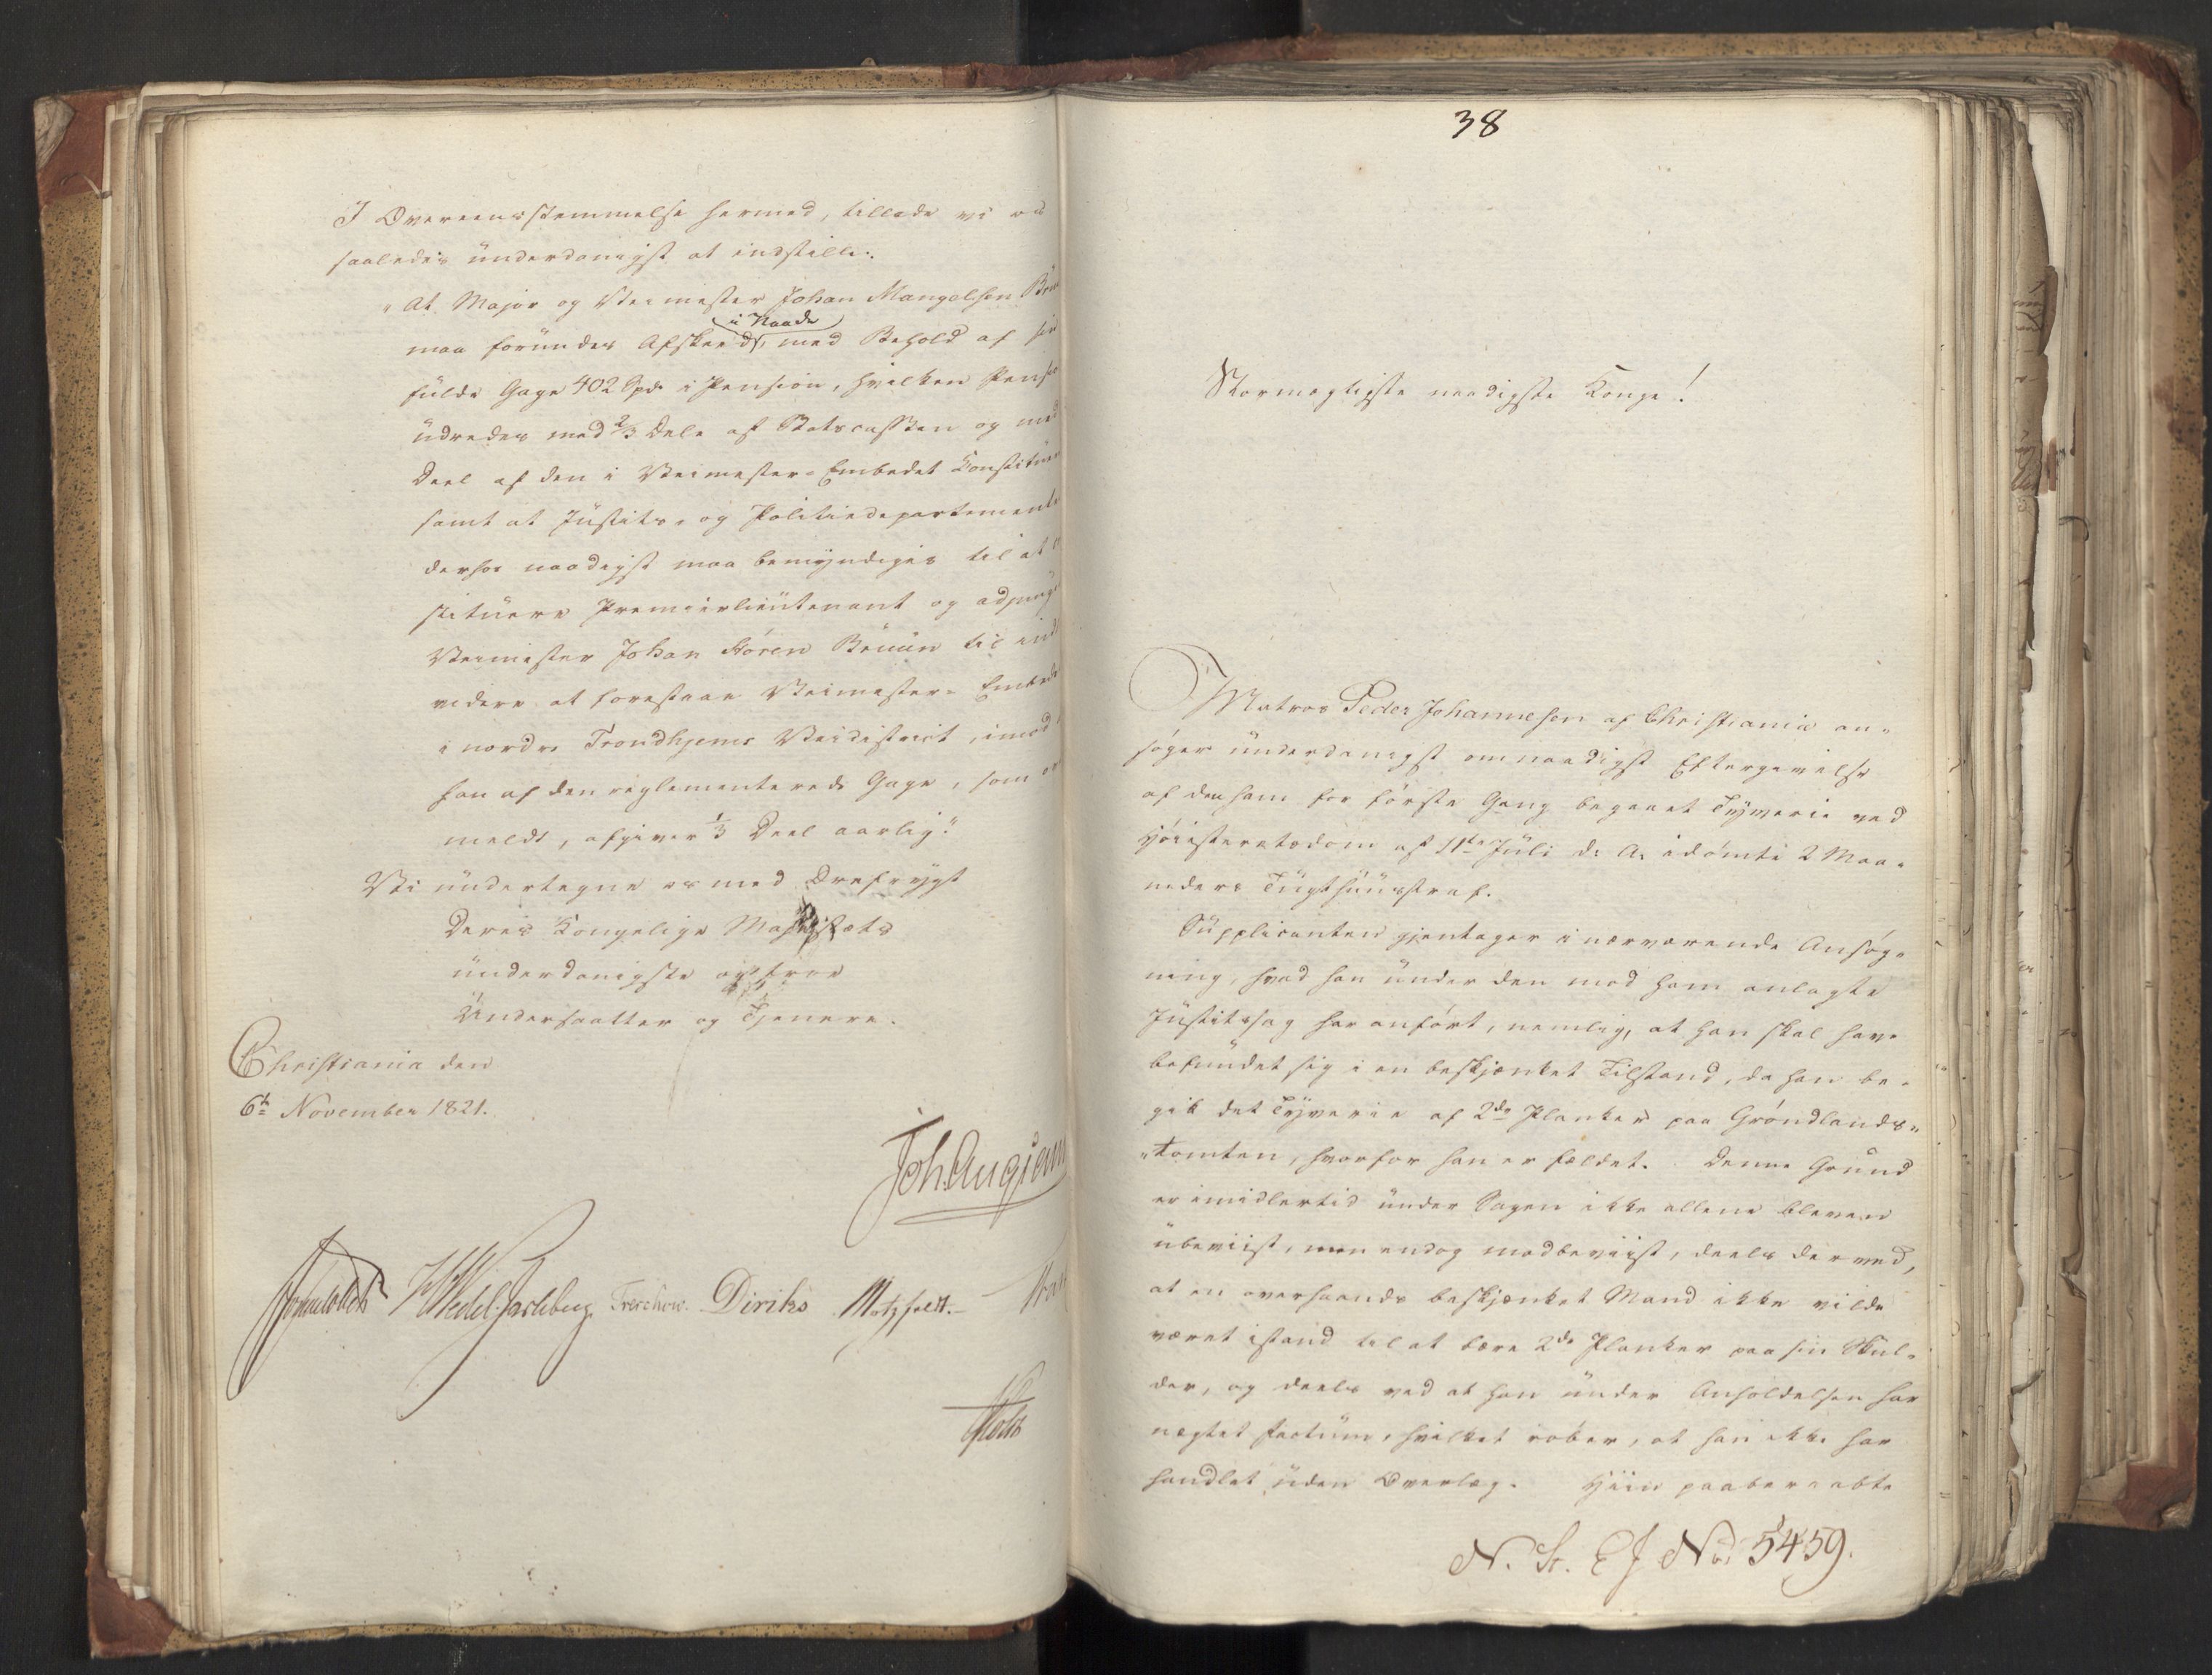 I Overeensstemmelse hermed, tillade vi os
saaledes underdanigst at indstille:
"At Major og Veimester Johan Mangelsen
i Naade
maa forundes Afskeed, med Behold af sin
fulde Gage 402 Spd. i Pension, hvilken
udredes med 2/3 Dele af Statscassen og med
Deel af den i Veimester-Embedet
samt at Justits- og Politiedepartementet
derhos naadigst maa bemyndiges til at
stituere Premierlieutenant og
Veimester Johan Støren Bruun til ind
videre at forestaae Veimester-Embedet
i nordre Trondhjems Veidistrict, imod
han af den reglementerede Gage, som
meldt, afgiver 1/3 Deel aarlig."
Vi undertegne os med Ærefrygt
Deres Kongelige Majestæts
underdanigste og troe
Undersaatter og Tjenere.
Christiania den
6te November 1821.
Joh. Aug.
Sommerhielm HWedel-Jarlsberg. Treschow. Diriks Motzfeldt.
Holst
38
Stormægtigste naadigste Konge!
Matros Peder Johannesen af Christiania an-
søger underdanigst om naadigst Eftergivelse
af den ham for første Gang begaaet Tyverie ved
Høiesteretsdom af 11te Juli d. A. idømte 2 Maa-
neders Tugthuusstraf.
Supplicanten gjentager i nærværende Ansøg-
ning, hvad han under den mod ham anlagte
Justitssag har anført, nemlig, at han skal have
befundet sig i en beskjænket Tilstand, da han be-
gik det Tyverie af 2de Planker paa Grøndlands-
-tomten, hvorfor han er fældet. Denne Grund
er imidlertid under Sagen ikke allene bleven
ubeviist, men endog modbeviist, deels derved,
at en overhaands beskjænket Mand ikke vilde
været istand til at bære 2de Planker paa sin Skul-
der, og deels ved at han under Anholdelsen har
nægtet factum, hvilket røber, at han ikke har
handlet uden Overlæg. Hiin paaberaabte
N. St. E J No 5459.